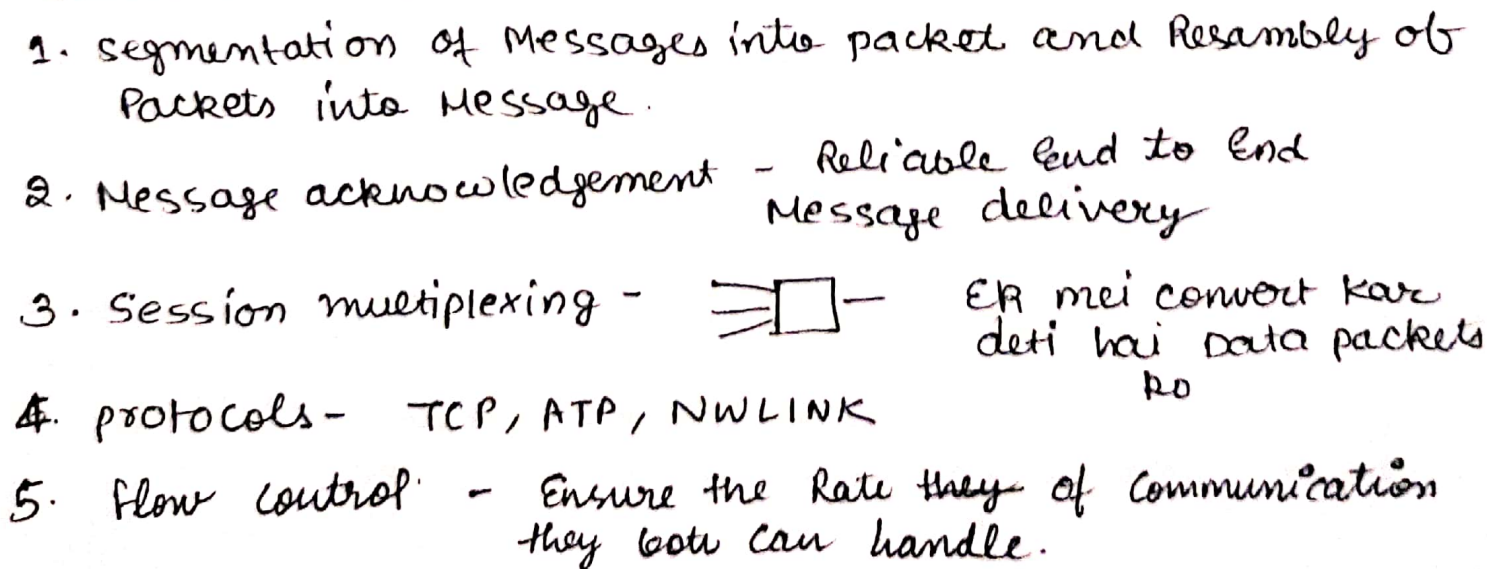 1. segmentation of Messages into packet and Resambly of
Packets into Message.
2. Message acknowledgement - Reliable End to End
Message delivery
3. Session multiplexing - EK mei convert kar
deti hai Data packets
ko
4. protocols - TCP, ATP, NWLINK
5. flow control - Ensure the Rate they of Communication
they both can handle.